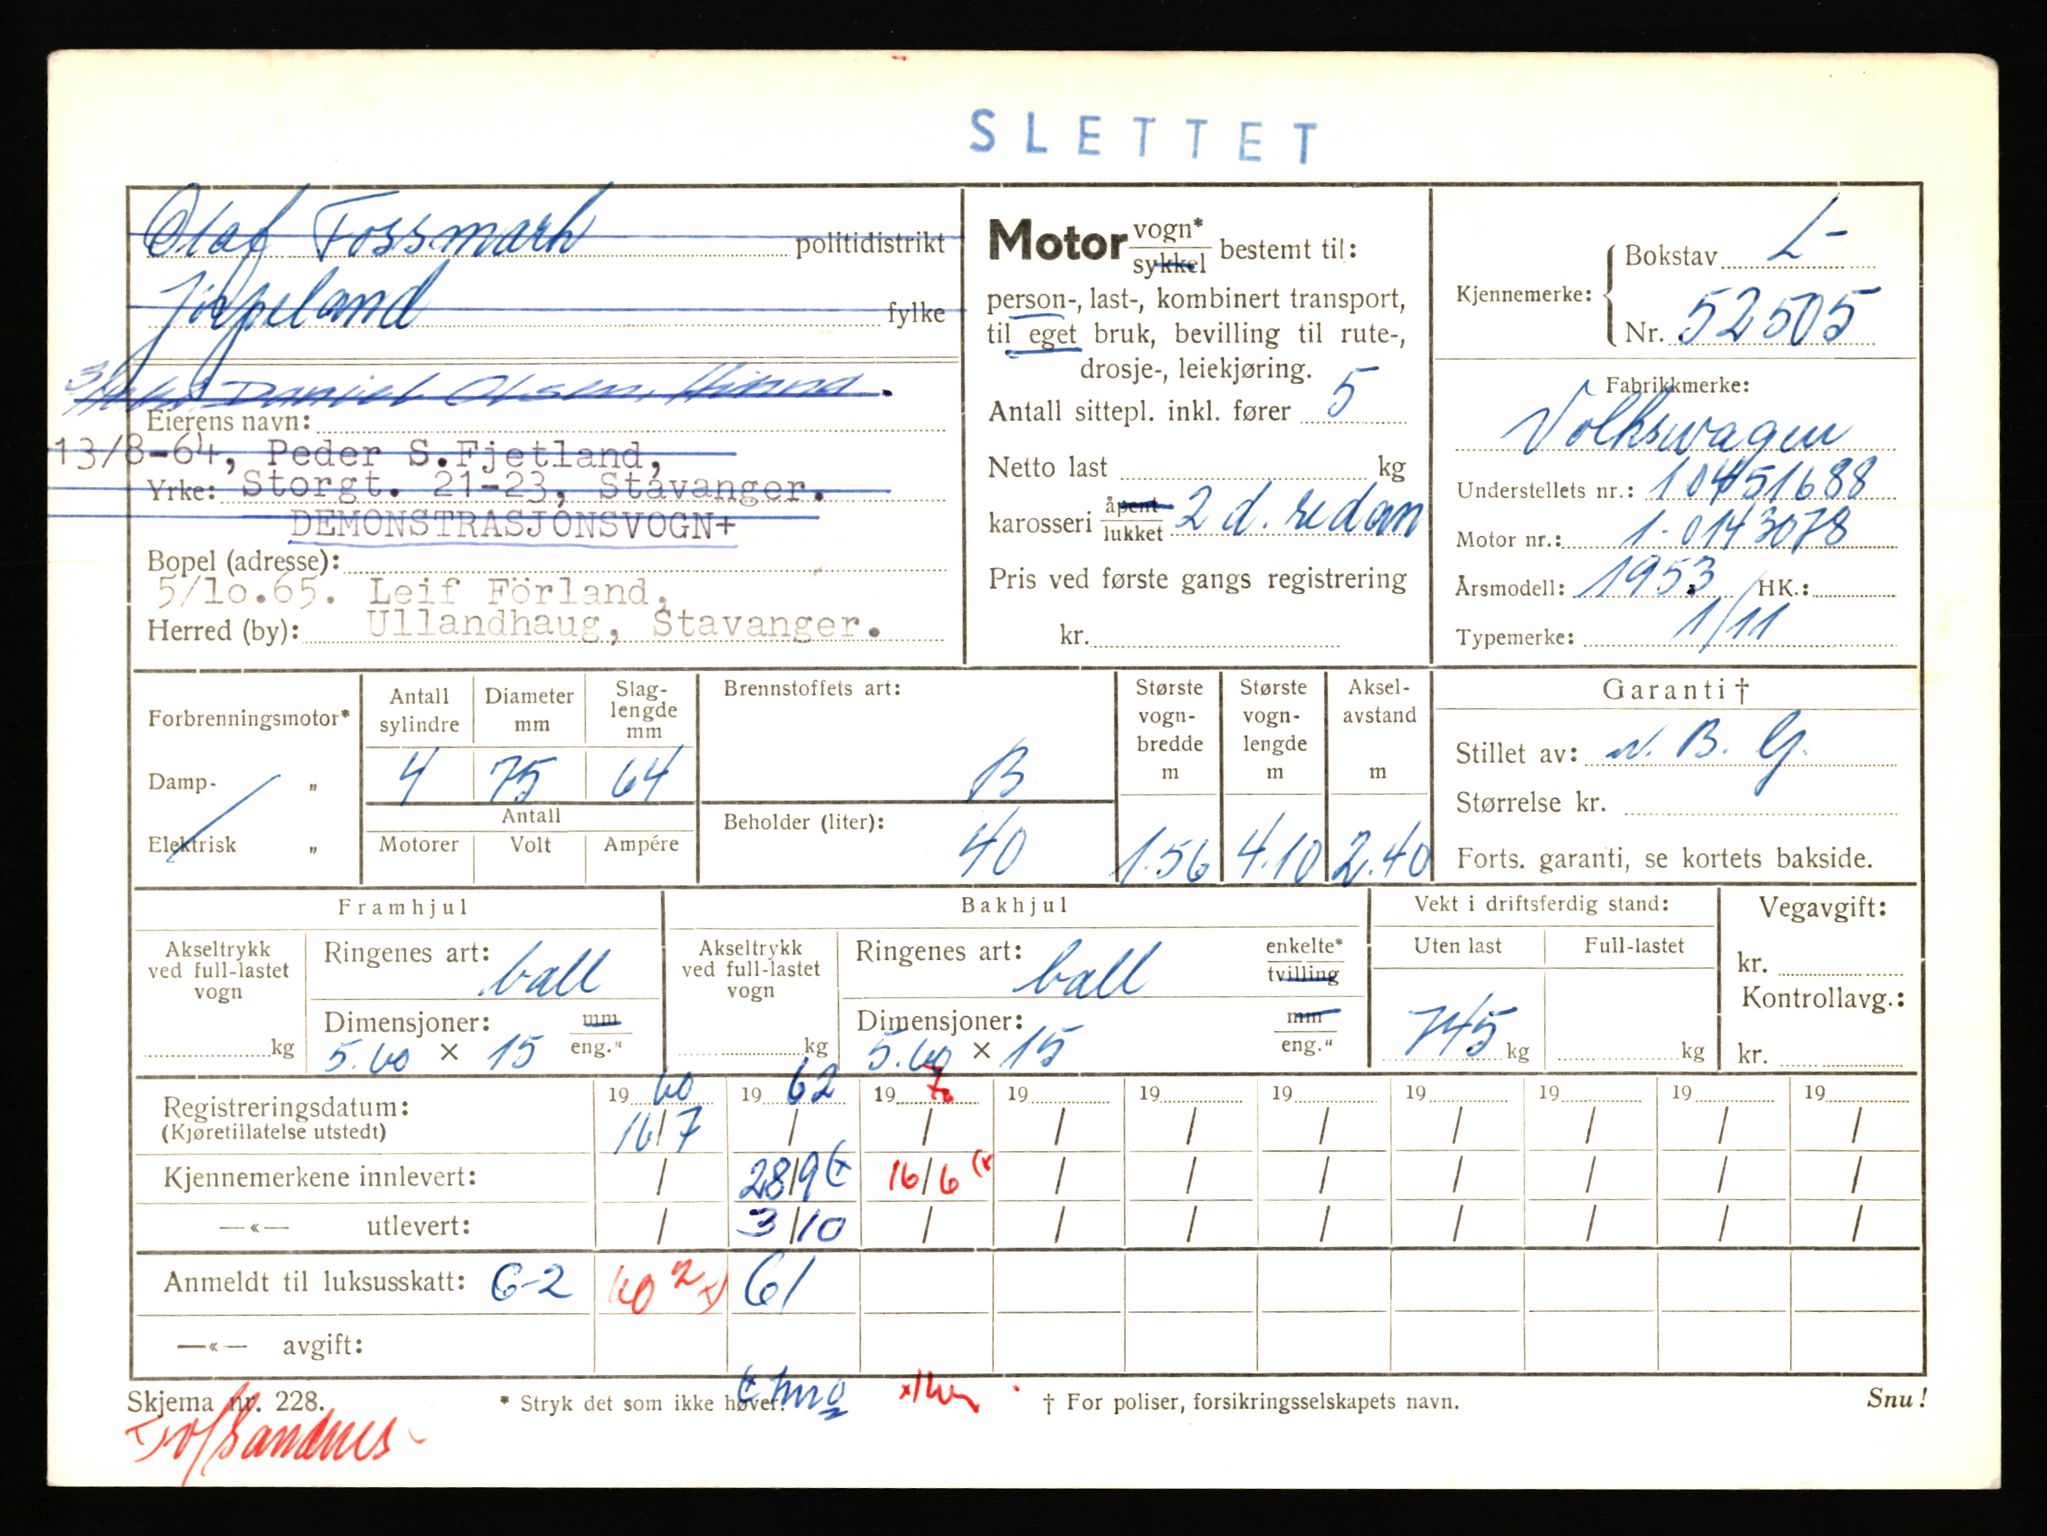 SLETTET
Olaf Fossmark politidistrikt
Jörpeland fylke
Daniel Olsen, Hinna.
Eierens navn:
13/8-64, Peder S.Fjetland,
Yrke: Storgt. 21-23, Stavanger.
DEMONSTRASJONSVOGN+
Bopel (adresse):
5/10.65. Leif Förland,
Herred (by): Ullandhaug, Stavanger.
Motor vogn* sykkel bestemt til:
person-, last-, kombinert transport,
til eget bruk, bevilling til rute-,
drosje-, leiekjøring.
Antall sittepl. inkl. fører 5
Netto last kg
karosseri åpent lukket 2 d. sedan
Pris ved første gangs registrering
kr.
Kjennemerke: Bokstav L-
Nr. 52505
Fabrikkmerke:
Volkswagen
Understellets nr.: 10451688
Motor nr.: 1-0143078
Årsmodell: 1953 HK.:
Typemerke: 1/11
Forbrenningsmotor*
Damp- „
Elektrisk „
Antall sylindre
Diameter mm
Slag-lengde mm
4 75 64
Antall
Motorer Volt Ampére
Brennstoffets art:
B
Beholder (liter):
40
Største vogn-bredde m
1.56
Største vogn-lengde m
4.10
Aksel-avstand m
2.40
Garanti †
Stillet av: N. B. G.
Størrelse kr.
Forts. garanti, se kortets bakside.
Framhjul
Akseltrykk ved full-lastet vogn
kg
Ringenes art: ball
Dimensjoner: mm eng."
5.60 × 15
Bakhjul
Akseltrykk ved full-lastet vogn
kg
Ringenes art: ball enkelte* tvilling
Dimensjoner: mm eng."
5.60 × 15
Vekt i driftsferdig stand:
Uten last Full-lastet
745 kg kg
Vegavgift:
kr.
Kontrollavg.:
kr.
19 60 19 62 19 70 19 19 19 19 19 19 19
Registreringsdatum: 16/7 / / / / / / / / /
(Kjøretillatelse utstedt)
Kjennemerkene innlevert: / 28/9 (x 16/6 (x / / / / / / /
—«— utlevert: / 3/10 / / / / / / / /
Anmeldt til luksusskatt: 6-2 60 2 x) 61
—«— avgift:
Skjema nr. 228.
* Stryk det som ikke høver.
† For poliser, forsikringsselskapets navn.
Snu!
Sandnes